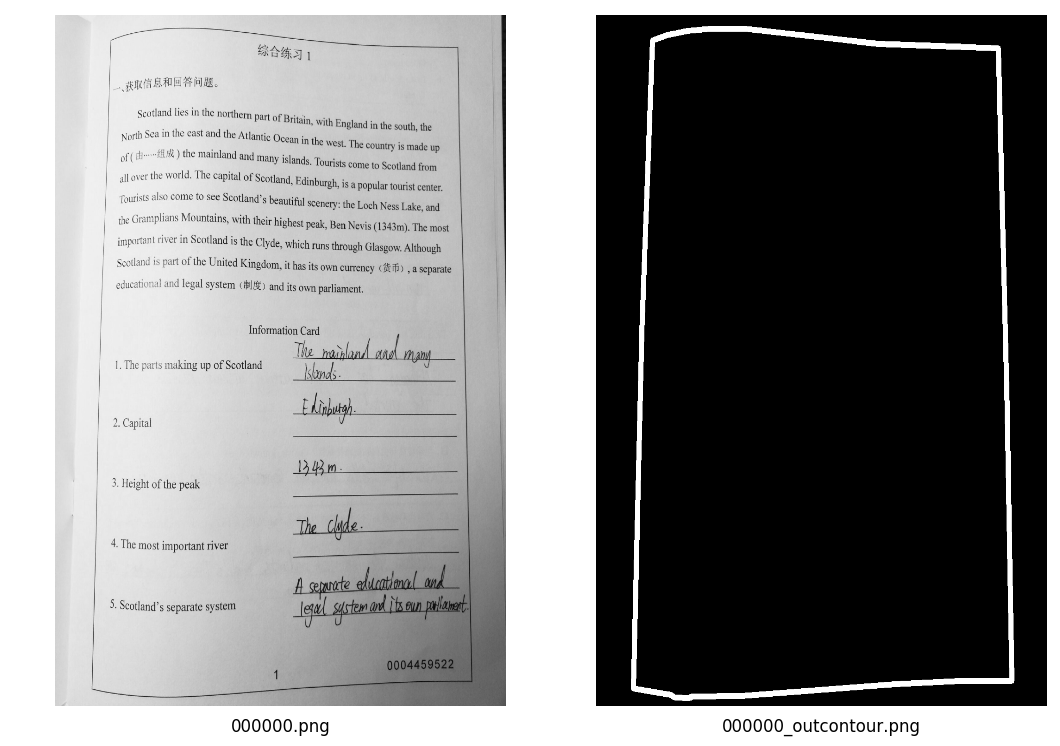 综合练习1
一、获取信息和回答问题。
Scotland lies in the northern part of Britain, with England in the south, the
North Sea in the east and the Atlantic Ocean in the west. The country is made up
of ( 由……组成 ) the mainland and many islands. Tourists come to Scotland from
all over the world. The capital of Scotland, Edinburgh, is a popular tourist center.
Tourists also come to see Scotland's beautiful scenery: the Loch Ness Lake, and
the Gramplians Mountains, with their highest peak, Ben Nevis (1343m). The most
important river in Scotland is the Clyde, which runs through Glasgow. Although
Scotland is part of the United Kingdom, it has its own currency (货币), a separate
educational and legal system (制度) and its own parliament.
Information Card
1. The parts making up of Scotland
The mainland and many
Islands.
2. Capital
Edinburgh.
3. Height of the peak
1343m.
4. The most important river
The Clyde.
5. Scotland's separate system
A separate educational and
legal system and its own parliament.
0004459522
1
000000.png
000000_outcontour.png